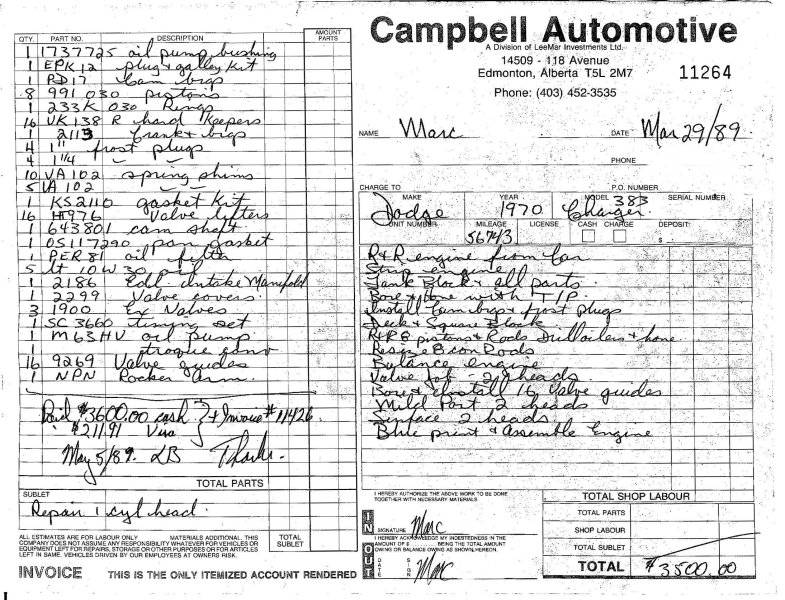 QTY. PART NO. DESCRIPTION AMOUNT PARTS
1 1737725 oil pump bushing
1 EPK12 plug & galley Kit
1 PD17 Cam brgs
8 991 030 pistons
1 233K 030 Rings
16 VK138 R hard Keepers
1 2113 Crank & brgs
4 1" frost plugs
4 1 1/4 " "
10 VA102 spring shims
5 VA102 " "
1 KS2110 gasket Kit
16 HT976 Valve lifters
1 643801 cam shaft
1 OS117290 pan gasket
1 PER81 oil filter
5 lt 10W30 oil
1 2186 Edl. intake Manifold
1 2299 Valve covers
3 1900 Ex Valves
1 SC3660 timing set
1 M63HV oil pump
1 torque conv
16 9269 Valve guides
1 NPN Rocker Arm
Paid $3600.00 cash } + Invoice # 11426
$211.91 Visa
May 5/89. LB Thanks.
TOTAL PARTS
SUBLET
Repair 1 cyl head.
ALL ESTIMATES ARE FOR LABOUR ONLY MATERIALS ADDITIONAL. THIS
COMPANY DOES NOT ASSUME ANY RESPONSIBILITY WHATEVER FOR VEHICLES OR
EQUIPMENT LEFT FOR REPAIRS, STORAGE OR OTHER PURPOSES OR FOR ARTICLES
LEFT IN SAME. VEHICLES DRIVEN BY OUR EMPLOYEES AT OWNERS RISK.
TOTAL SUBLET
INVOICE THIS IS THE ONLY ITEMIZED ACCOUNT RENDERED
Campbell Automotive
A Division of LeeMar Investments Ltd.
14509 - 118 Avenue
Edmonton, Alberta T5L 2M7
11264
Phone: (403) 452-3535
NAME Marc DATE Mar 29/89.
PHONE
CHARGE TO P.O. NUMBER
MAKE YEAR MODEL SERIAL NUMBER
Dodge 1970 383 Charger
UNIT NUMBER MILEAGE LICENSE CASH CHARGE DEPOSIT
56743 $
R+R engine from Car
Strip engine
Tank Block & all parts
Bore & Hone with T/P
Install Cam brgs & frost plugs
Deck & Square Block
R+R 8 pistons & Rods Drill oilers & hone
Resize 8 con Rods
Balance engine
Valve Job - 2 heads
Bore & Install 16 Valve guides
Mild Port 2 heads
Surface 2 heads
Blue print & Assemble Engine
I HEREBY AUTHORIZE THE ABOVE WORK TO BE DONE
TOGETHER WITH NECESSARY MATERIALS
IN SIGNATURE Marc
I HEREBY ACKNOWLEDGE MY INDEBTEDNESS IN THE
AMOUNT OF $ BEING THE TOTAL AMOUNT
OWING OR BALANCE OWING AS SHOWN HEREON.
OUT DATE SIGN Marc
TOTAL SHOP LABOUR
TOTAL PARTS
SHOP LABOUR
TOTAL SUBLET
TOTAL $3500.00